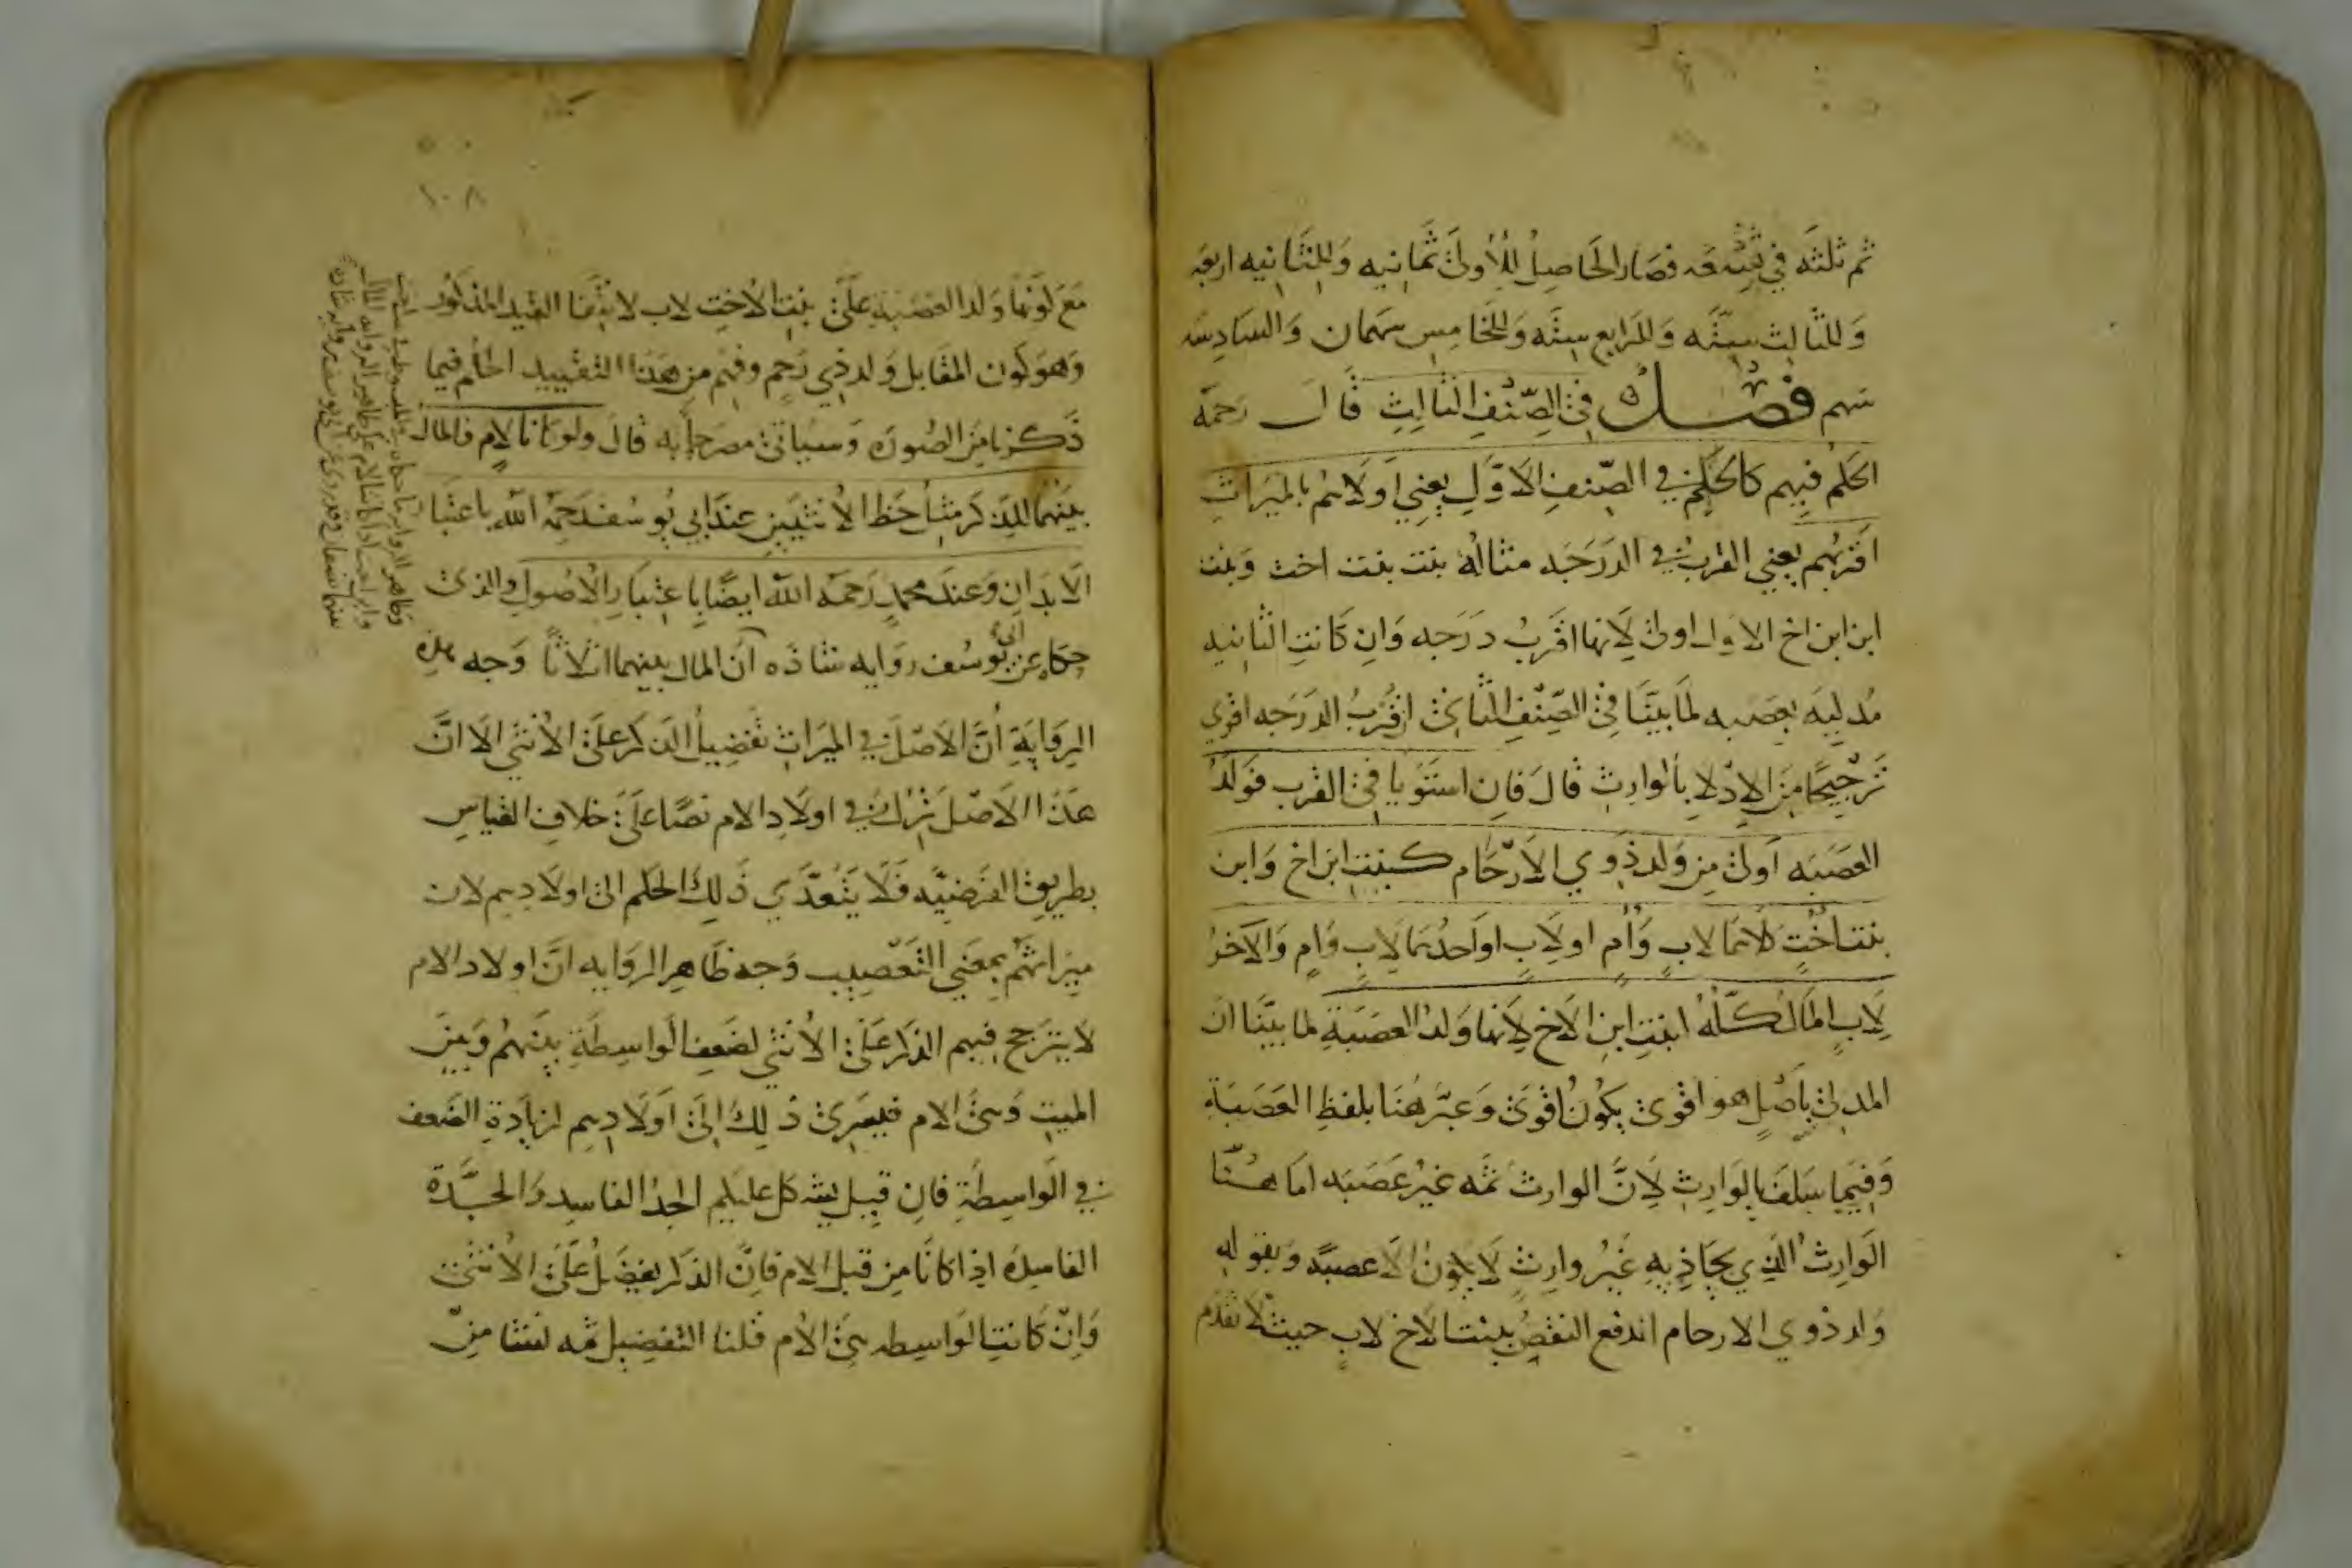 ثم ثلثه في تسعه فصار الحاصل للاولى ثمانيه وللثانيه اربعه
وللثالث ستّه وللرابع سته وللخامس سهمان والسادسه
سهم فصل في الصّنف الثالث قال رحمه
الحكم فيهم كالحكم في الصّنف الاوّل يعني اولاهم بالميراث
اقربهم يعني القرب في الدرجه مثاله بنت بنت اخت وبنت
ابن ابن اخ الاولى اولى لانها اقرب درجه وان كانت الثانيه
مدليه بعصبه لما بيّنا في الصّنف الثاني ان قرب الدرجه اقوي
ترجيحًا من الادلاء بالوارث قال فان استويا في القرب فولد
العصبه اولى من ولد ذوي الارحام كبنت ابن اخ وابن
بنت اخت كلاهما لاب وام او لاب او احدهما لاب وام والآخر
لاب المال كلّه لبنت ابن الاخ لانها ولد العصبة لما بيّنا ان
المدلى باصل هو اقوى يكون اقوى وعبّر هنا بلفظ العصبة
وفيما سلف بالوارث لانّ الوارث ثمه غير عصبه اما هنا
الوارث الذي يحاذيه غير وارث لا يكون الا عصبةً وبقوله
ولد ذوي الارحام اندفع النقض ببنت الاخ لاب حيث لا تقدم
١٠٨
مع كونها ولد العصبة على بنت الاخت لاب لانتفا القيد المذكور
وهو كون المقابل ولد ذي رحم وفهم من هذا التقييد الحكم فيما
ذكرنا من الصوره وسياتي مصرحا به قال ولو كانا لام فالمال
بينهما للذكر مثل حظ الانثيين عند ابي يوسف رحمه الله باعتبا
الابدان وعند محمد رحمه الله ايضًا باعتبار الاصول والذى
حكاه عن ابي يوسف روايه شاذه ان المال بينهما اثلاثا وجه هذه
الرواية أنّ الاصل في الميراث تفضيل الذكر على الانثي الا انّ
هذا الاصل ترك في اولاد الام نصًا على خلاف القياس
بطريق الفرضيّه فلا يتعدّي ذلك الحكم الى اولادهم لان
ميراثهم بمعني التعصيب وجه ظاهر الروايه انّ اولاد الام
لا يترجح فيهم الذكر على الانثي لضعف الواسطة بينهم وبين
الميت وهى الام فيسري ذلك الى اولادهم لزيادة الضعف
في الواسطة فان قيل يشكل عليكم الجد الفاسد والجدّة
الفاسده اذا كانا من قبل الام فانّ الذكر يفضل على الانثى
وان كانت الواسطه هى الام قلنا التفضيل ثمه نشا من